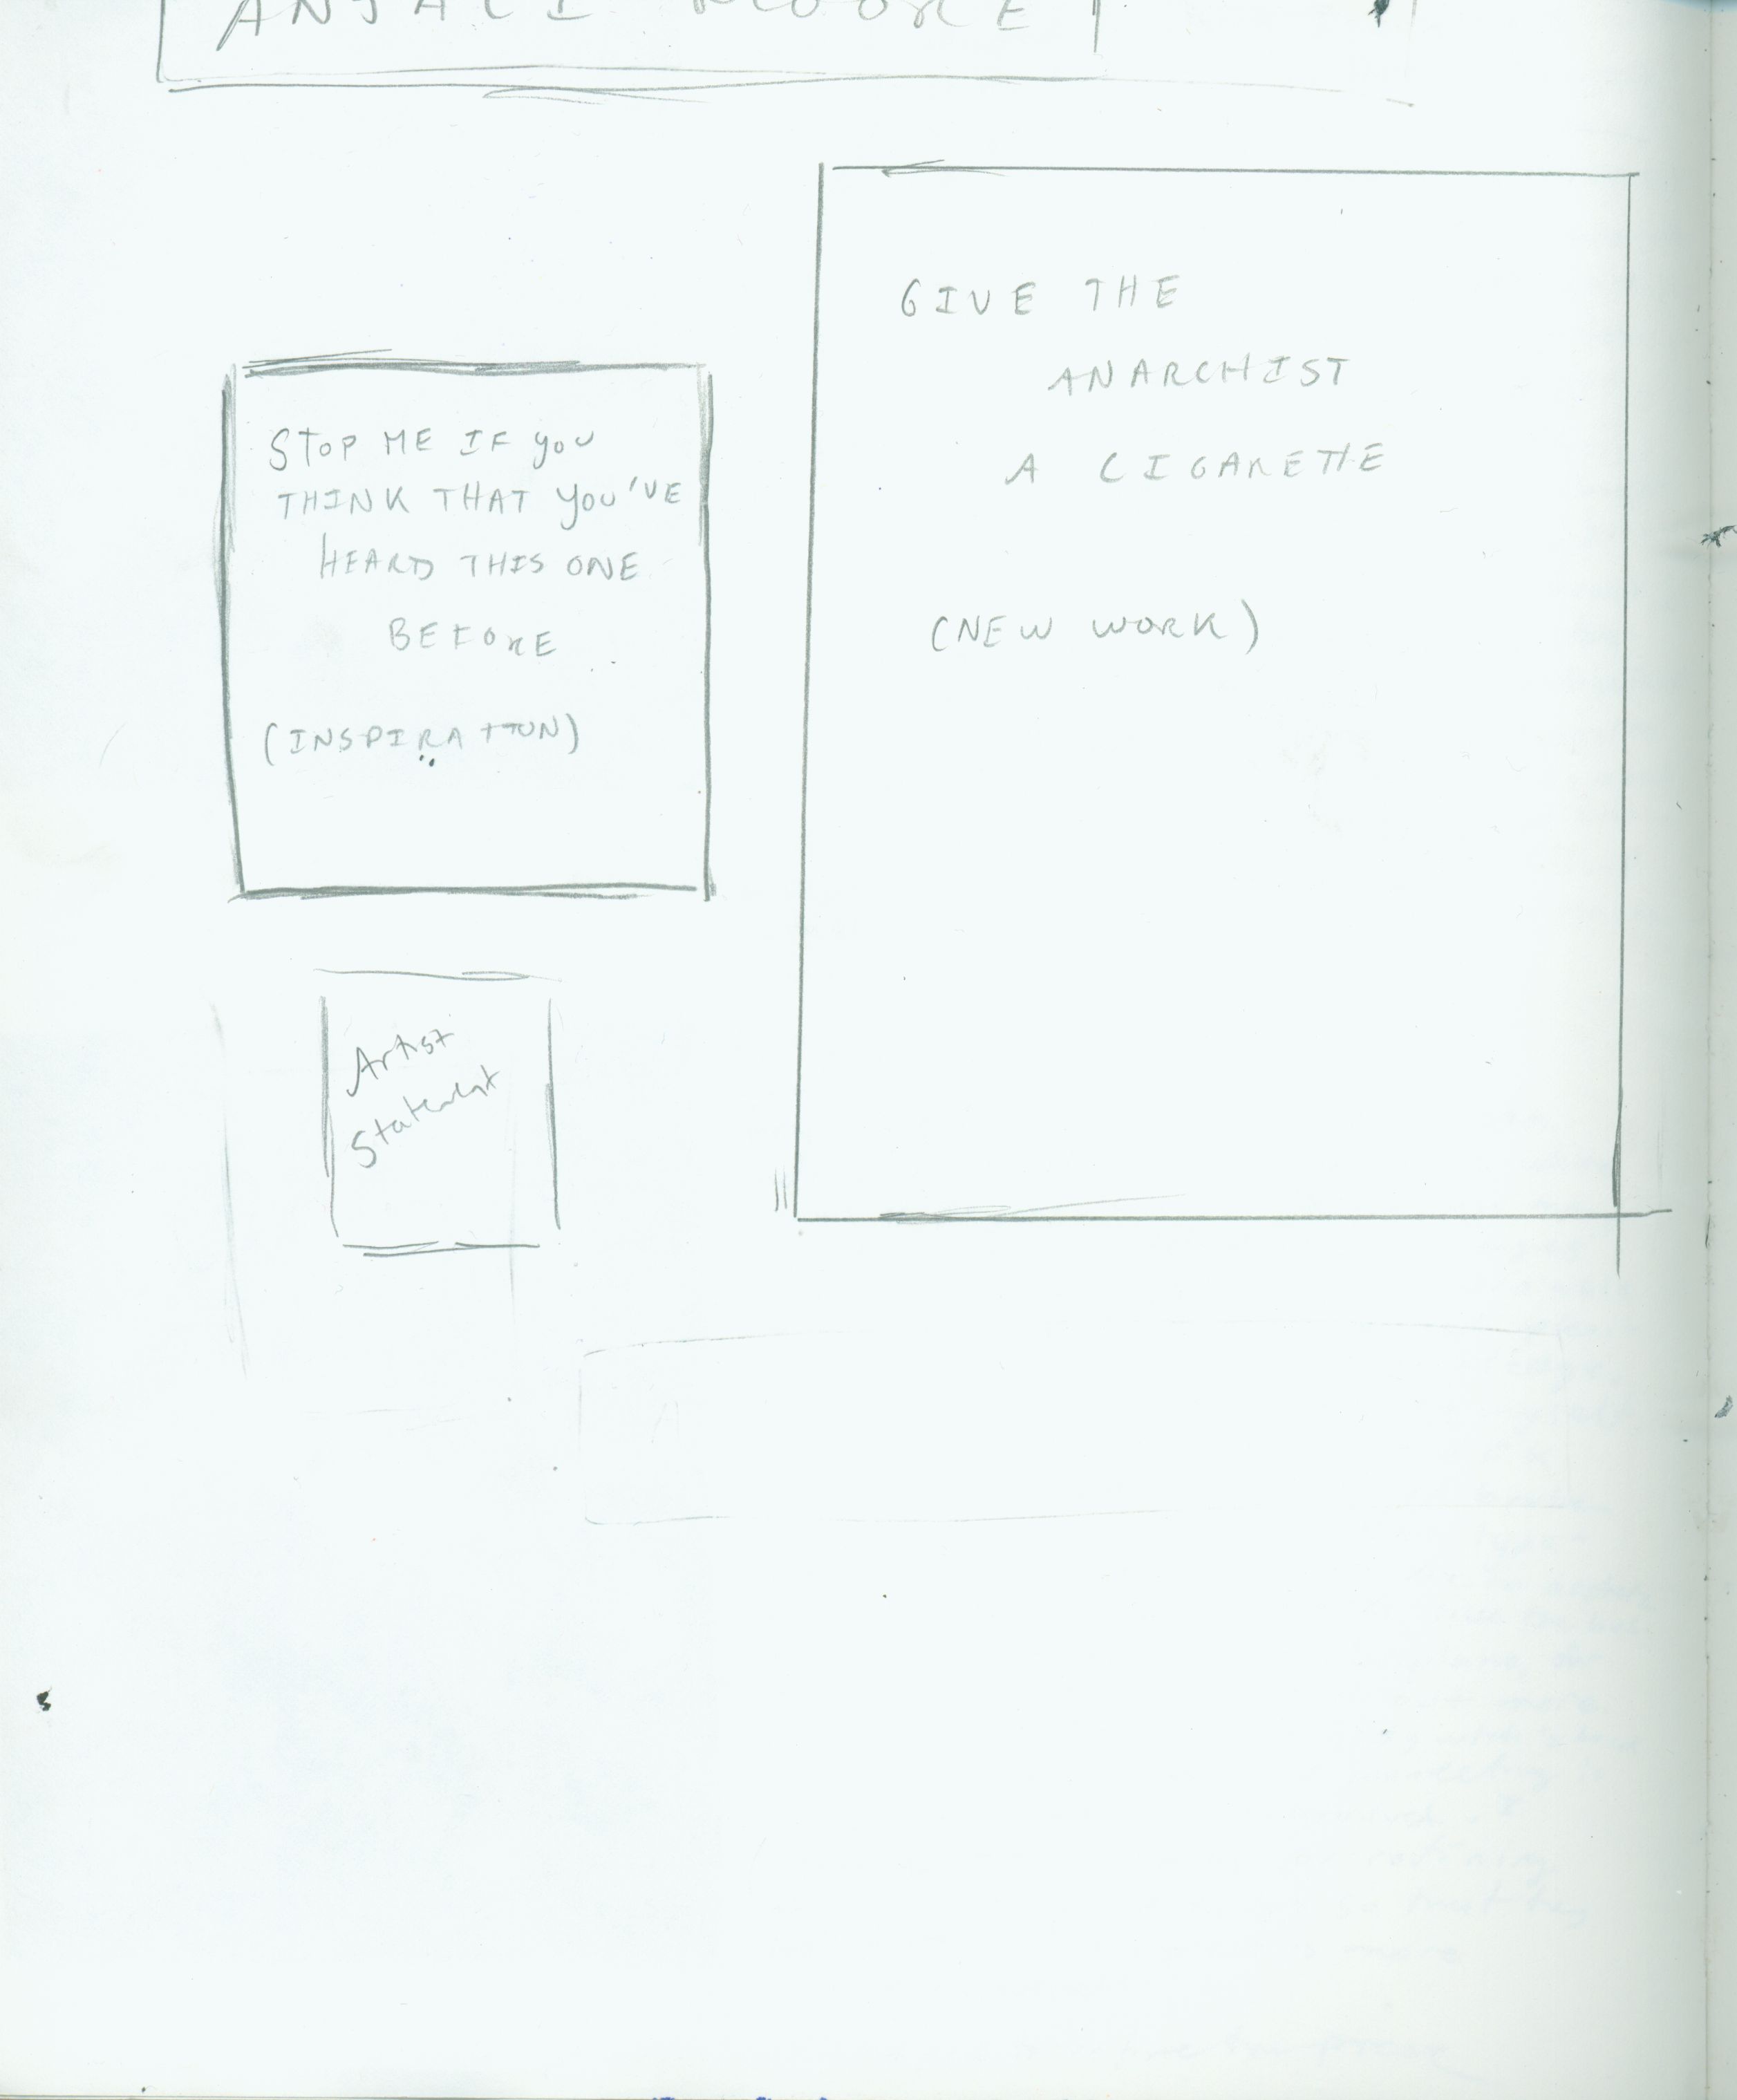 ANJALI MOORE
STOP ME IF YOU
THINK THAT YOU'VE
HEARD THIS ONE
BEFORE
(INSPIRATION)
GIVE THE
ANARCHIST
A CIGARETTE
(NEW WORK)
Artist
Statement